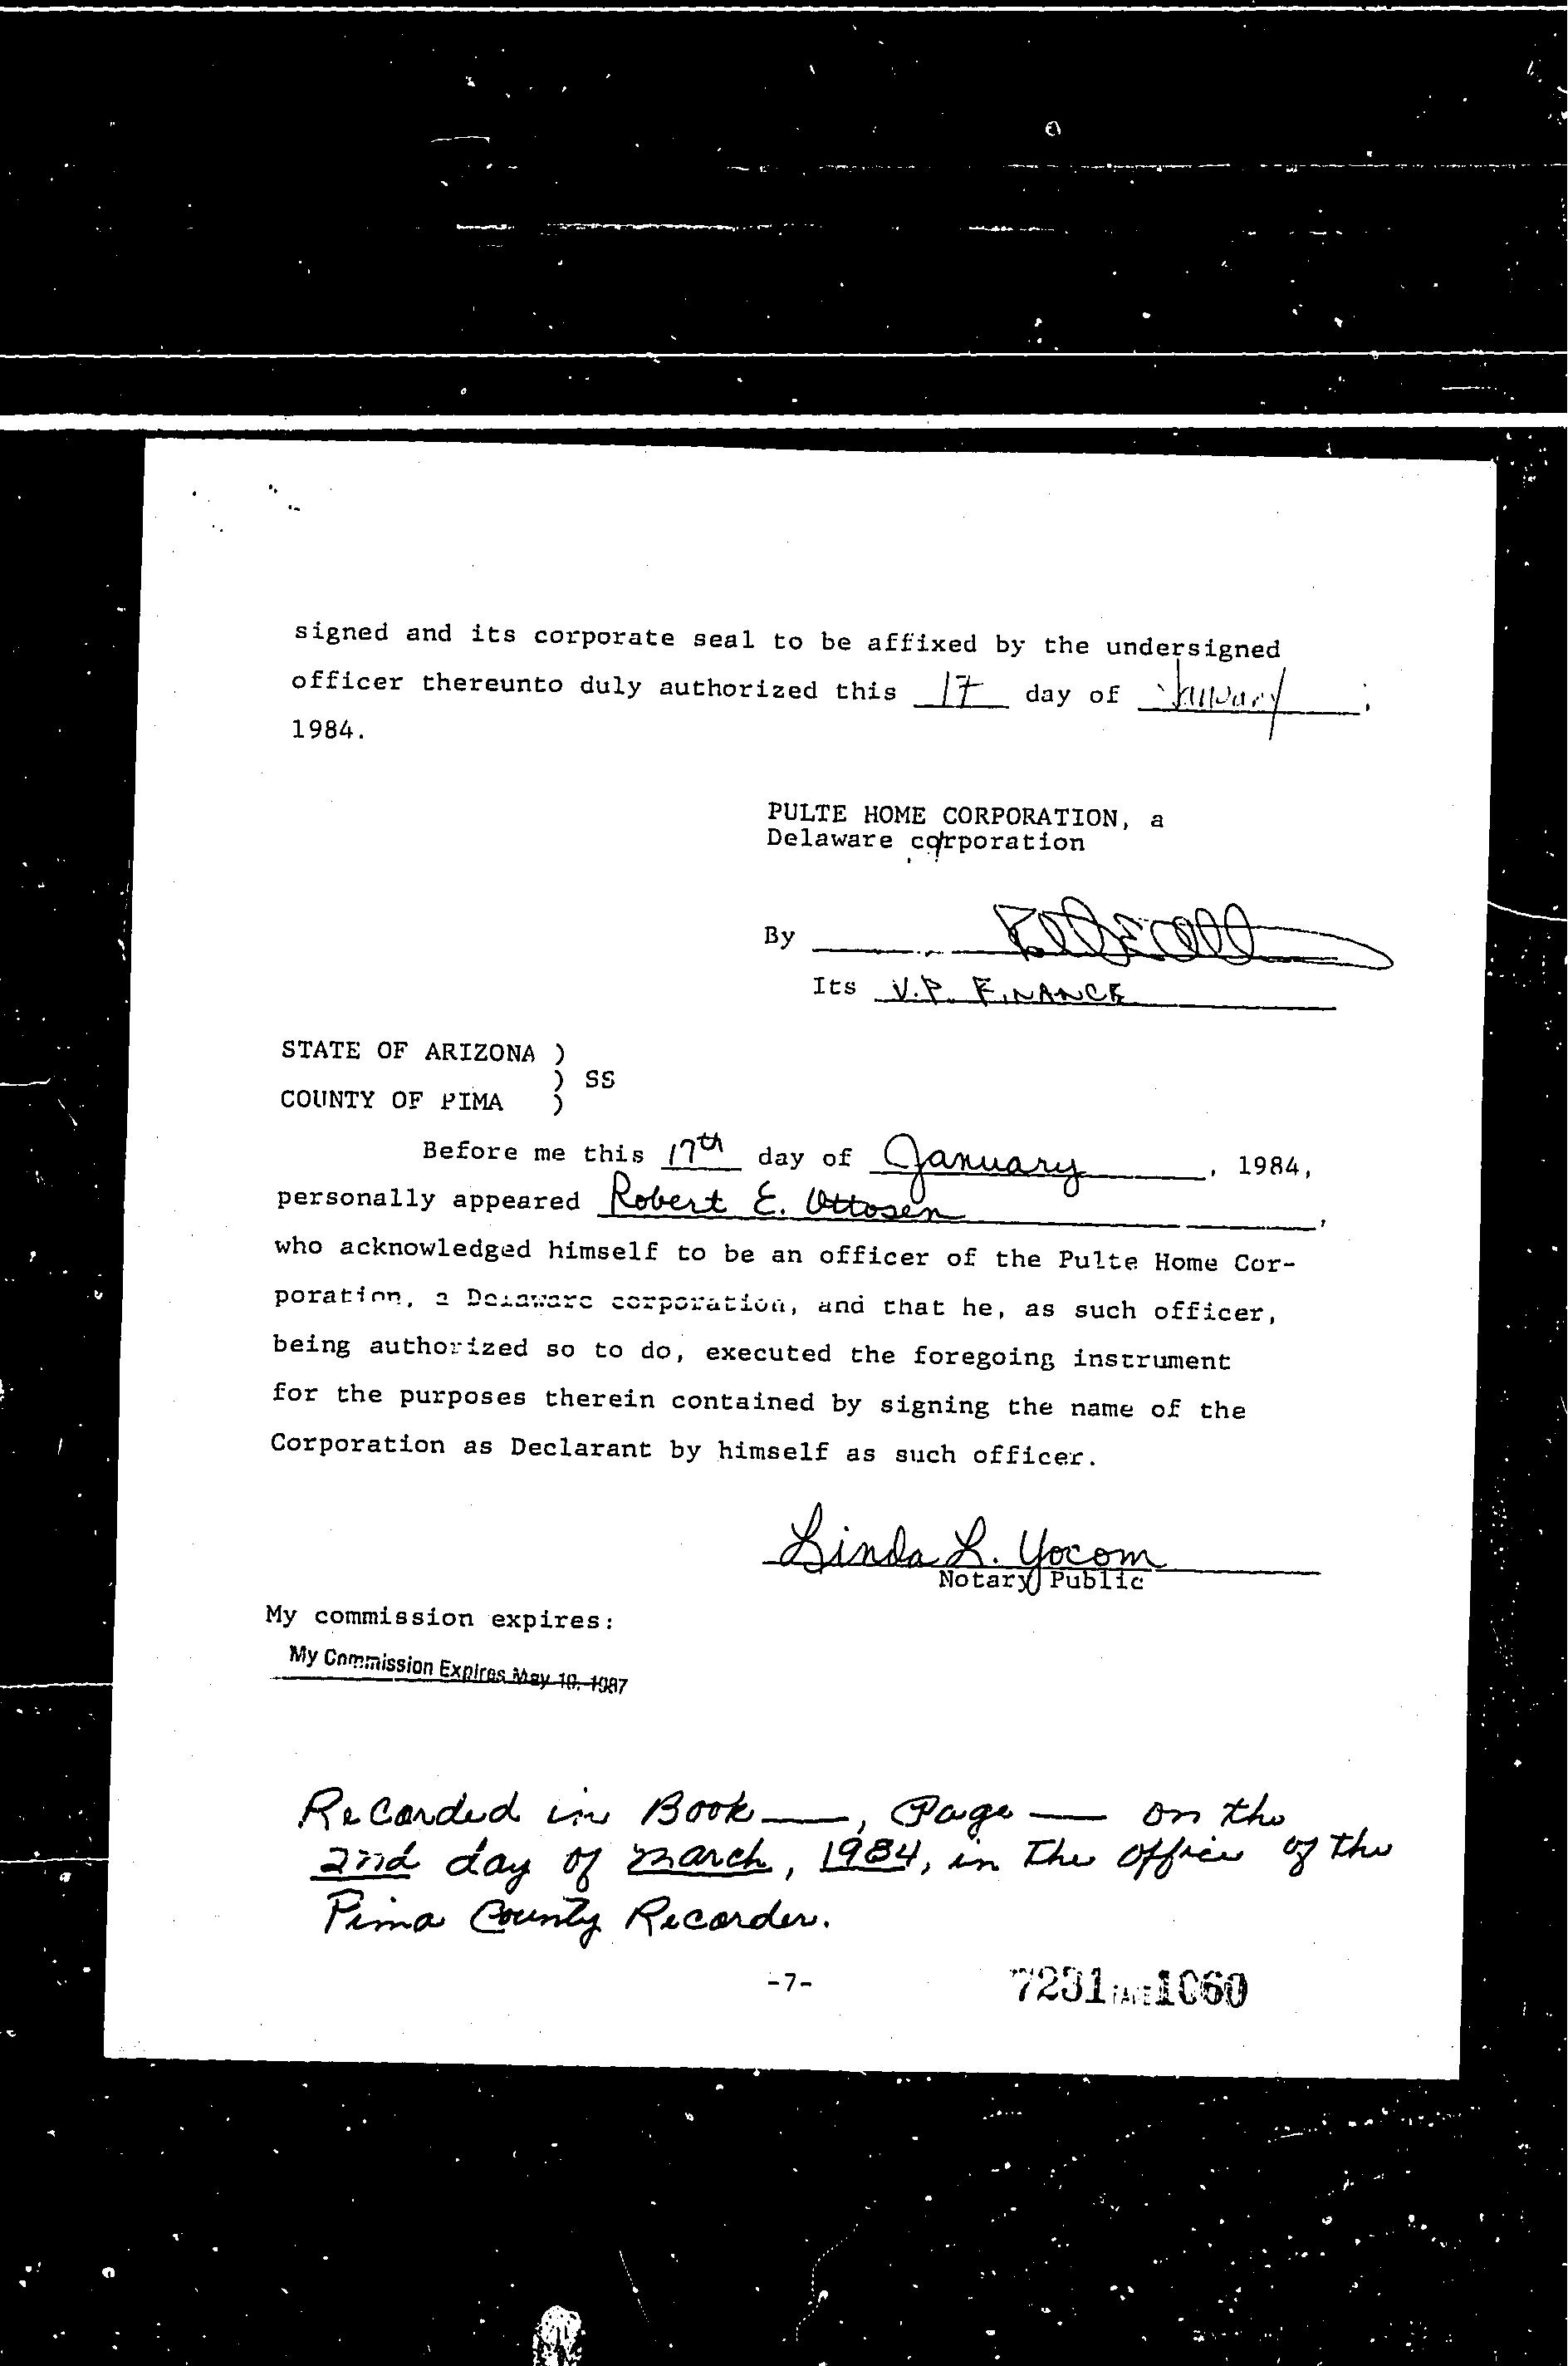 signed and its corporate seal to be affixed by the undersigned
officer thereunto duly authorized this 17 day of January,
1984.
PULTE HOME CORPORATION, a
Delaware corporation
By
Its V.P. FINANCE
STATE OF ARIZONA )
) SS
COUNTY OF PIMA )
Before me this 17th day of January, 1984,
personally appeared Robert E. Ottosen,
who acknowledged himself to be an officer of the Pulte Home Cor-
poration, a Delaware corporation, and that he, as such officer,
being authorized so to do, executed the foregoing instrument
for the purposes therein contained by signing the name of the
Corporation as Declarant by himself as such officer.
Linda L. Yocom
Notary Public
My commission expires:
My Commission Expires May 10, 1987
Recorded in Book —, Page — on the
2nd day of March, 1984, in the office of the
Pima County Recorder.
-7-
7231 PAGE 1060